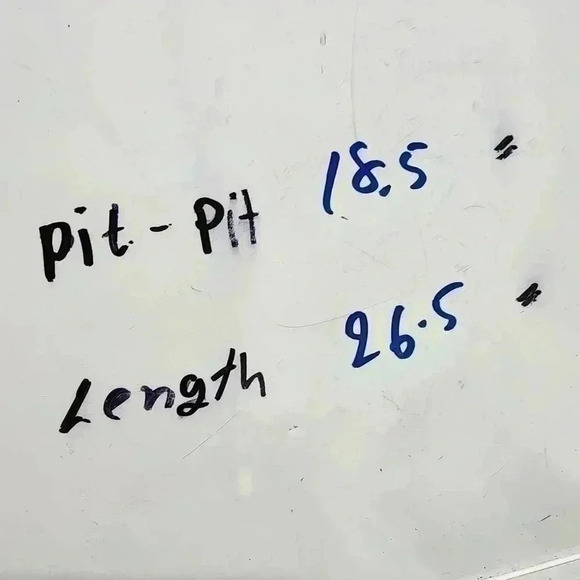 pit - pit 18.5 "
Length 26.5 "